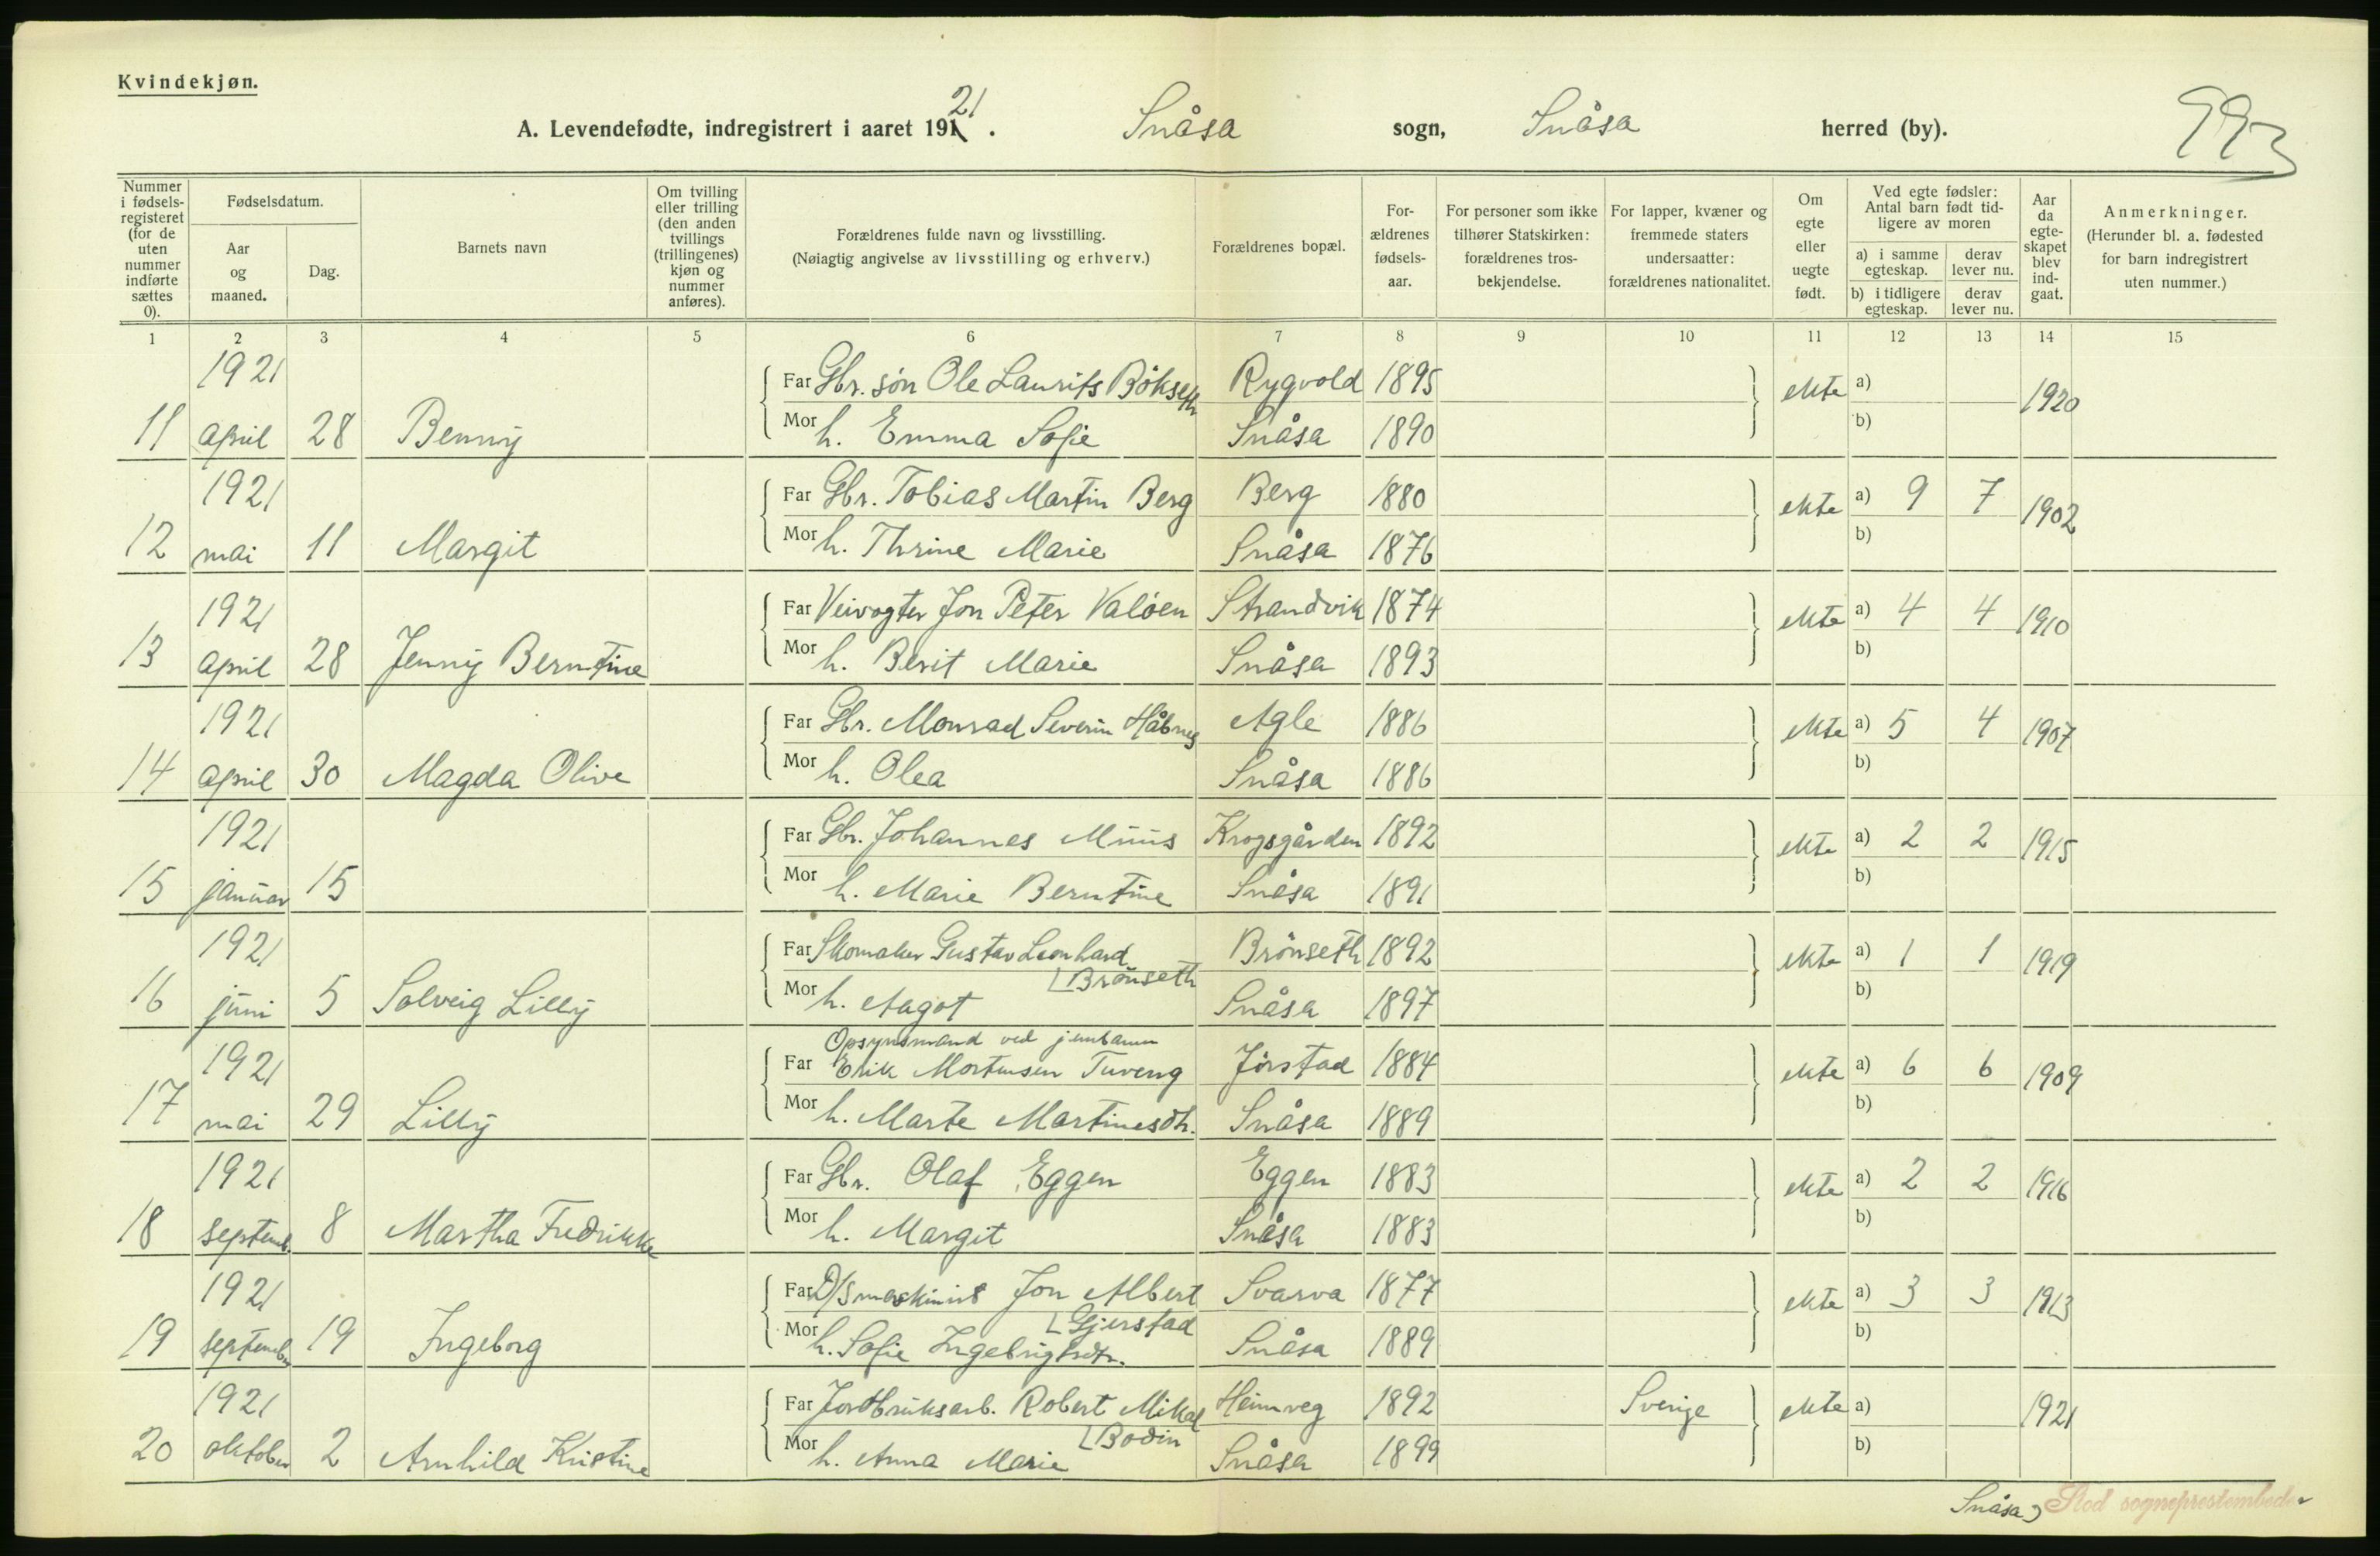 Kvindekjøn.
A. Levendefødte, indregistrert i aaret 1921. Snåsa sogn, Snåsa herred (by). 993
Nummer i fødsels-registeret (for de uten nummer indførte sættes 0).
Fødselsdatum.
Aar og maaned.
Dag.
Barnets navn
Om tvilling eller trilling (den anden tvillings (trillingenes) kjøn og nummer anføres).
Forældrenes fulde navn og livsstilling.
(Nøiagtig angivelse av livsstilling og erhverv.)
Forældrenes bopæl.
For-ældrenes fødsels-aar.
For personer som ikke tilhører Statskirken: forældrenes tros-bekjendelse.
For lapper, kvæner og fremmede staters undersaatter: forældrenes nationalitet.
Om egte eller uegte født.
Ved egte fødsler: Antal barn født tid-ligere av moren
a) i samme egteskap.
derav lever nu.
b) i tidligere egteskap.
derav lever nu.
Aar da egte-skapet blev ind-gaat.
Anmerkninger.
(Herunder bl. a. fødested for barn indregistrert uten nummer.)
1 2 3 4 5 6 7 8 9 10 11 12 13 14 15
1921 Far Gbr. søn Ole Laurits Bökseth Rygvold 1895 ekte a) 1920
11 april 28 Benny Mor h. Emma Sofie Snåsa 1890 b)
1921 Far Gbr. Tobias Martin Berg Berg 1880 ekte a) 9 7 1902
12 mai 11 Margit Mor h. Thrine Marie Snåsa 1876 b)
1921 Far Veivogter Jon Peter Valöen Strandvik 1874 ekte a) 4 4 1910
13 april 28 Jenny Berntine Mor h. Berit Marie Snåsa 1893 b)
1921 Far Gbr. Monrad Severin Håbnes Agle 1886 ekte a) 5 4 1907
14 april 30 Magda Olive Mor h. Olea Snåsa 1886 b)
1921 Far Gbr. Johannes Muus Krogsgården 1892 ekte a) 2 2 1915
15 januar 15 Mor h. Marie Berntine Snåsa 1891 b)
1921 Far Skomaker Gustav Leonhard Brönseth 1892 ekte a) 1 1 1919
Brönseth
16 juni 5 Solveig Lilly Mor h. Aagot Snåsa 1897 b)
Opsynsmand ved jernbanen
1921 Far Erik Mortensen Tuveng Jörstad 1884 ekte a) 6 6 1909
17 mai 29 Lilly Mor h. Marte Martinesdtr. Snåsa 1889 b)
1921 Far Gbr. Olaf Eggen Eggen 1883 ekte a) 2 2 1916
18 septemb. 8 Martha Fredrikke Mor h. Margit Snåsa 1883 b)
1921 Far D/S maskinist Jon Albert Svarva 1877 ekte a) 3 3 1913
Gjerstad
19 september 19 Ingeborg Mor h. Sofie Ingebrigtsdtr. Snåsa 1889 b)
1921 Far Jordbruksarb. Robert Mikal Heimveg 1892 Sverige ekte a) 1921
Bodin
20 oktober 2 Arnhild Kristine Mor h. Anna Marie Snåsa 1899 b)
Snåsa, Stod sogneprestembede